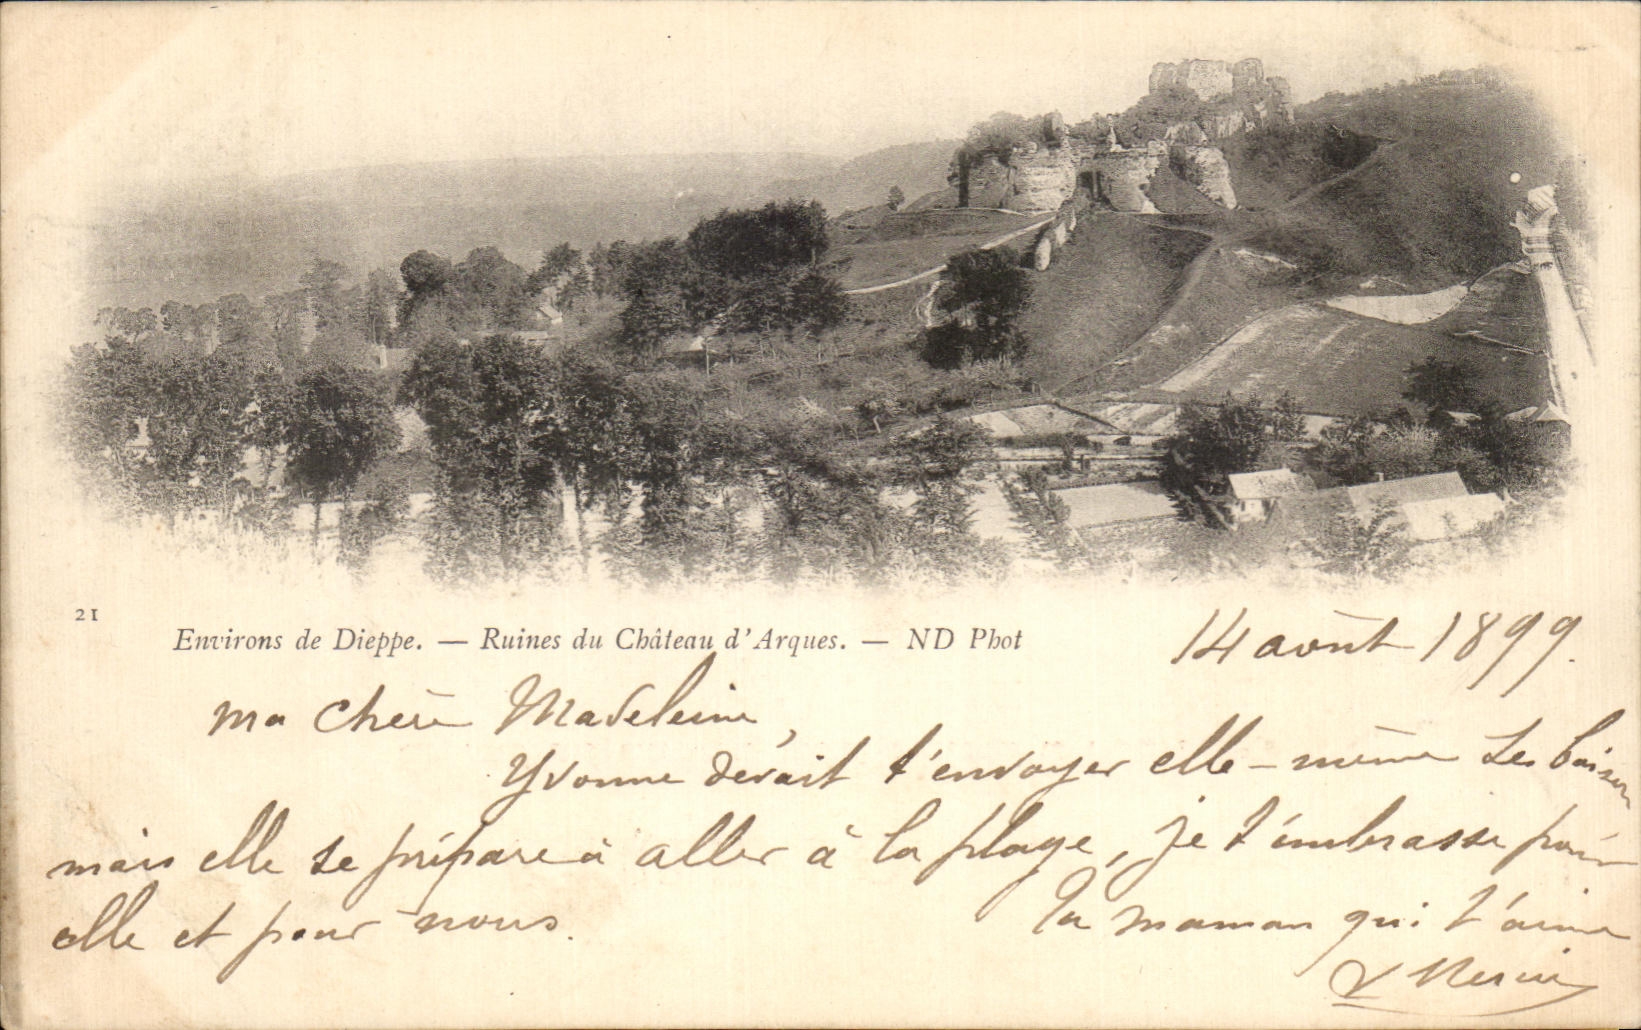 21
Environs de Dieppe. — Ruines du Château d'Arques. — ND Phot
14 août 1899.
Ma chère Madeleine,
Yvonne devait t'envoyer elle-même ses baisers
mais elle se prépare à aller à la plage, je t'embrasse pour
elle et pour nous.
Ta maman qui t'aime